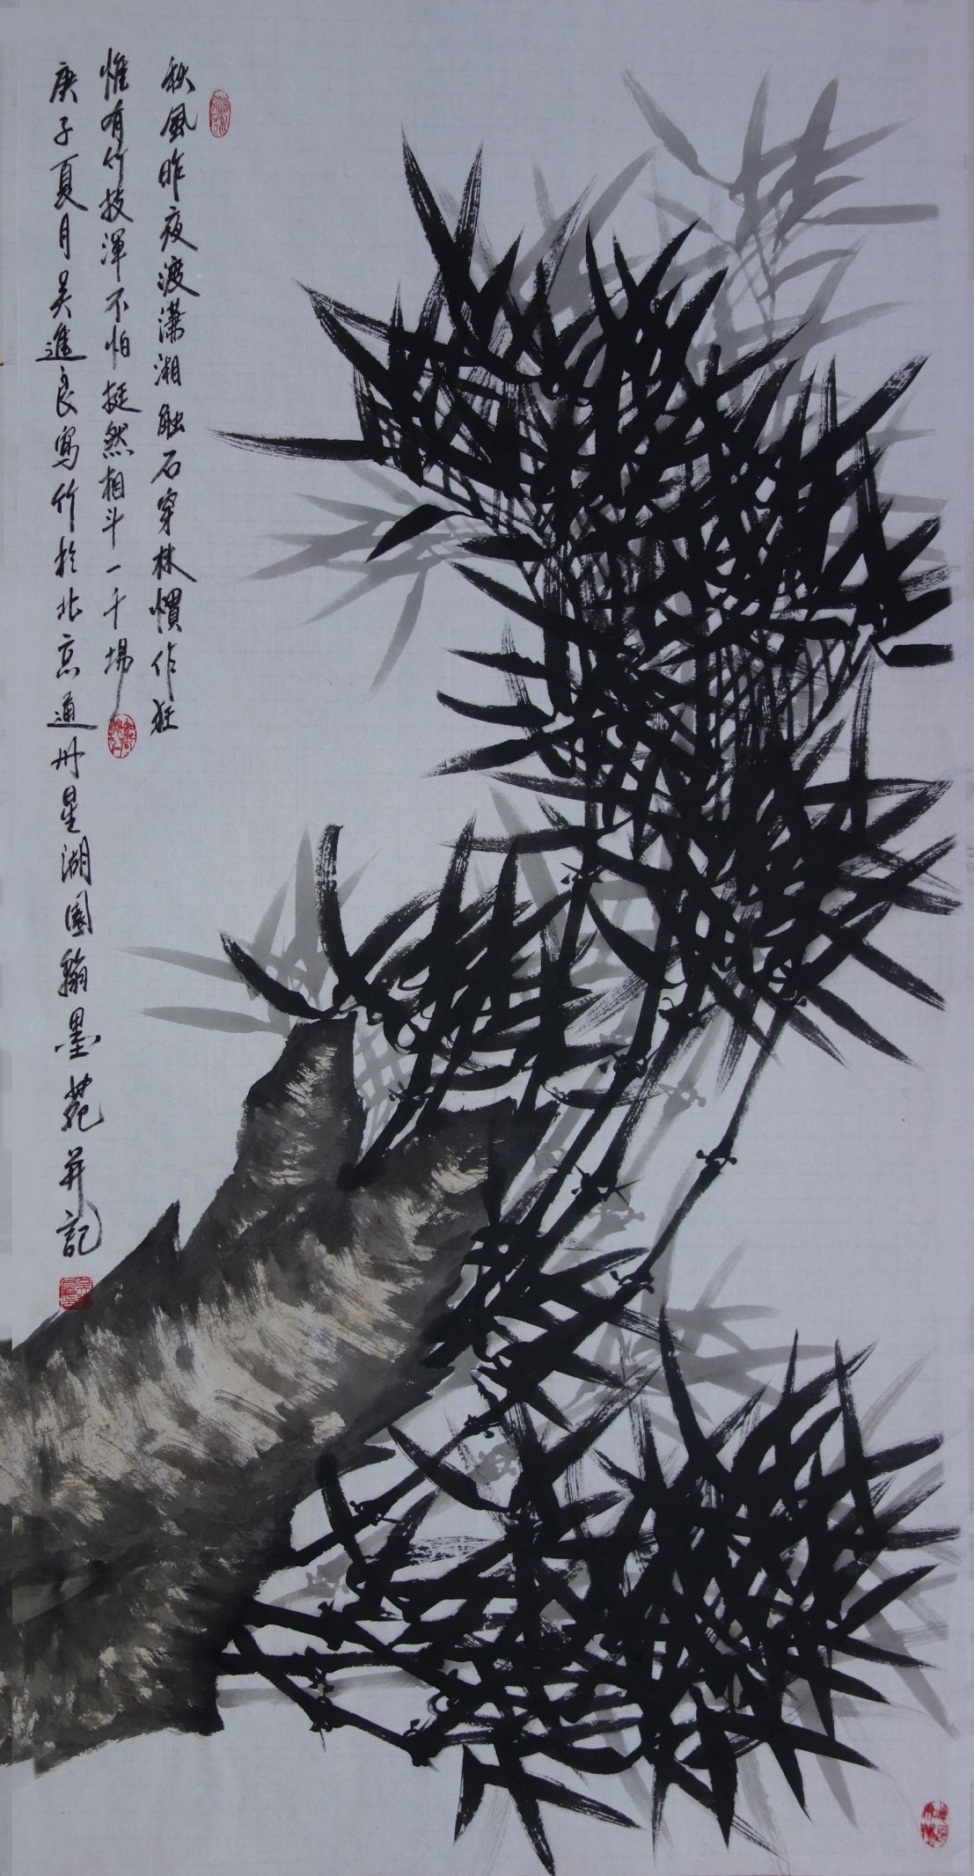 秋風昨夜渡瀟湘触石穿林慣作狂
惟有竹技渾不怕挺然相斗一千場
庚子夏月吴進良寫竹於北京通州星湖園翰墨苑并記